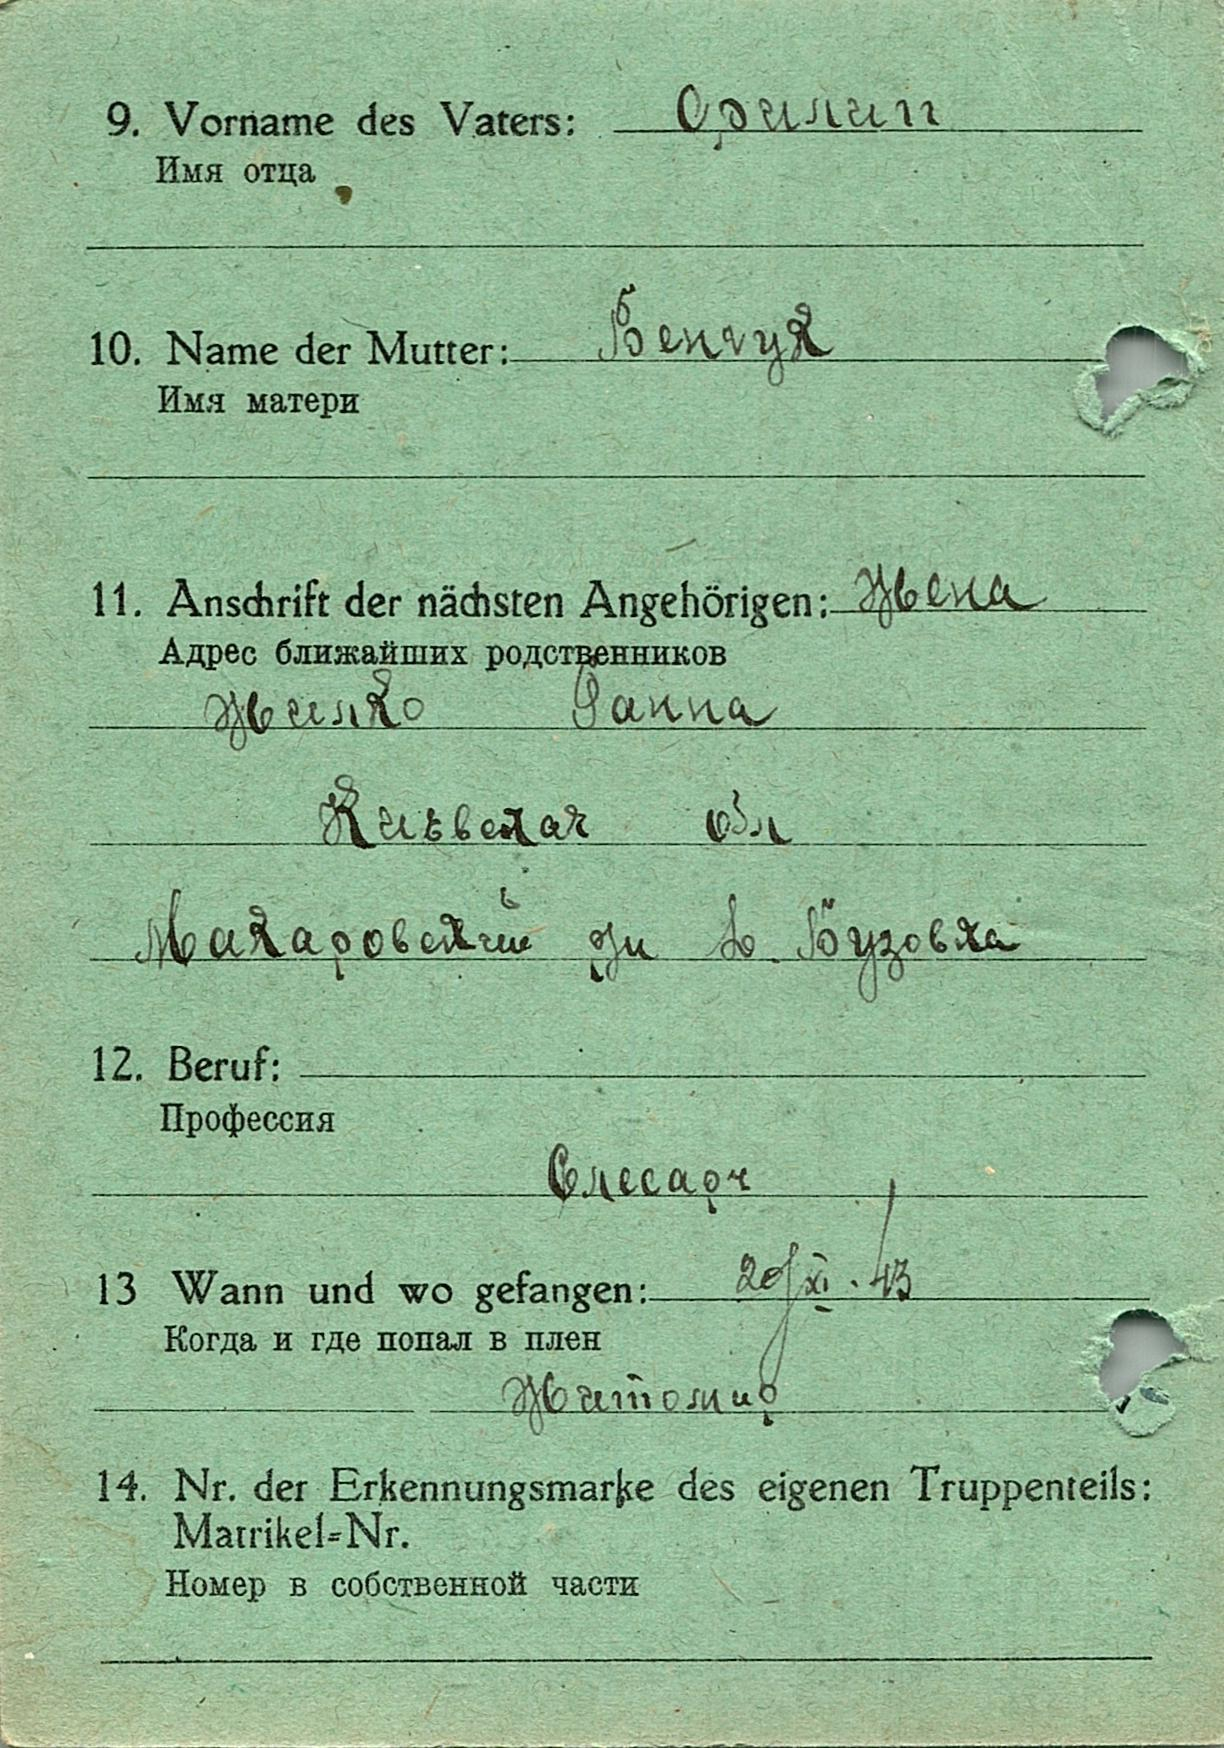 9. Vorname des Vaters: Филип
Имя отца
10. Name der Mutter: Бенчук
Имя матери
11. Anschrift der nächsten Angehörigen: Жена
Адрес ближайших родственников
Жилко Ганна
Киевская обл
Макаровский рн с. Бузовка
12. Beruf:
Профессия
Слесарь
13 Wann und wo gefangen: 20/XI.43
Когда и где попал в плен
Житомир
14. Nr. der Erkennungsmarke des eigenen Truppenteils:
Matrikel=Nr.
Номер в собственной части